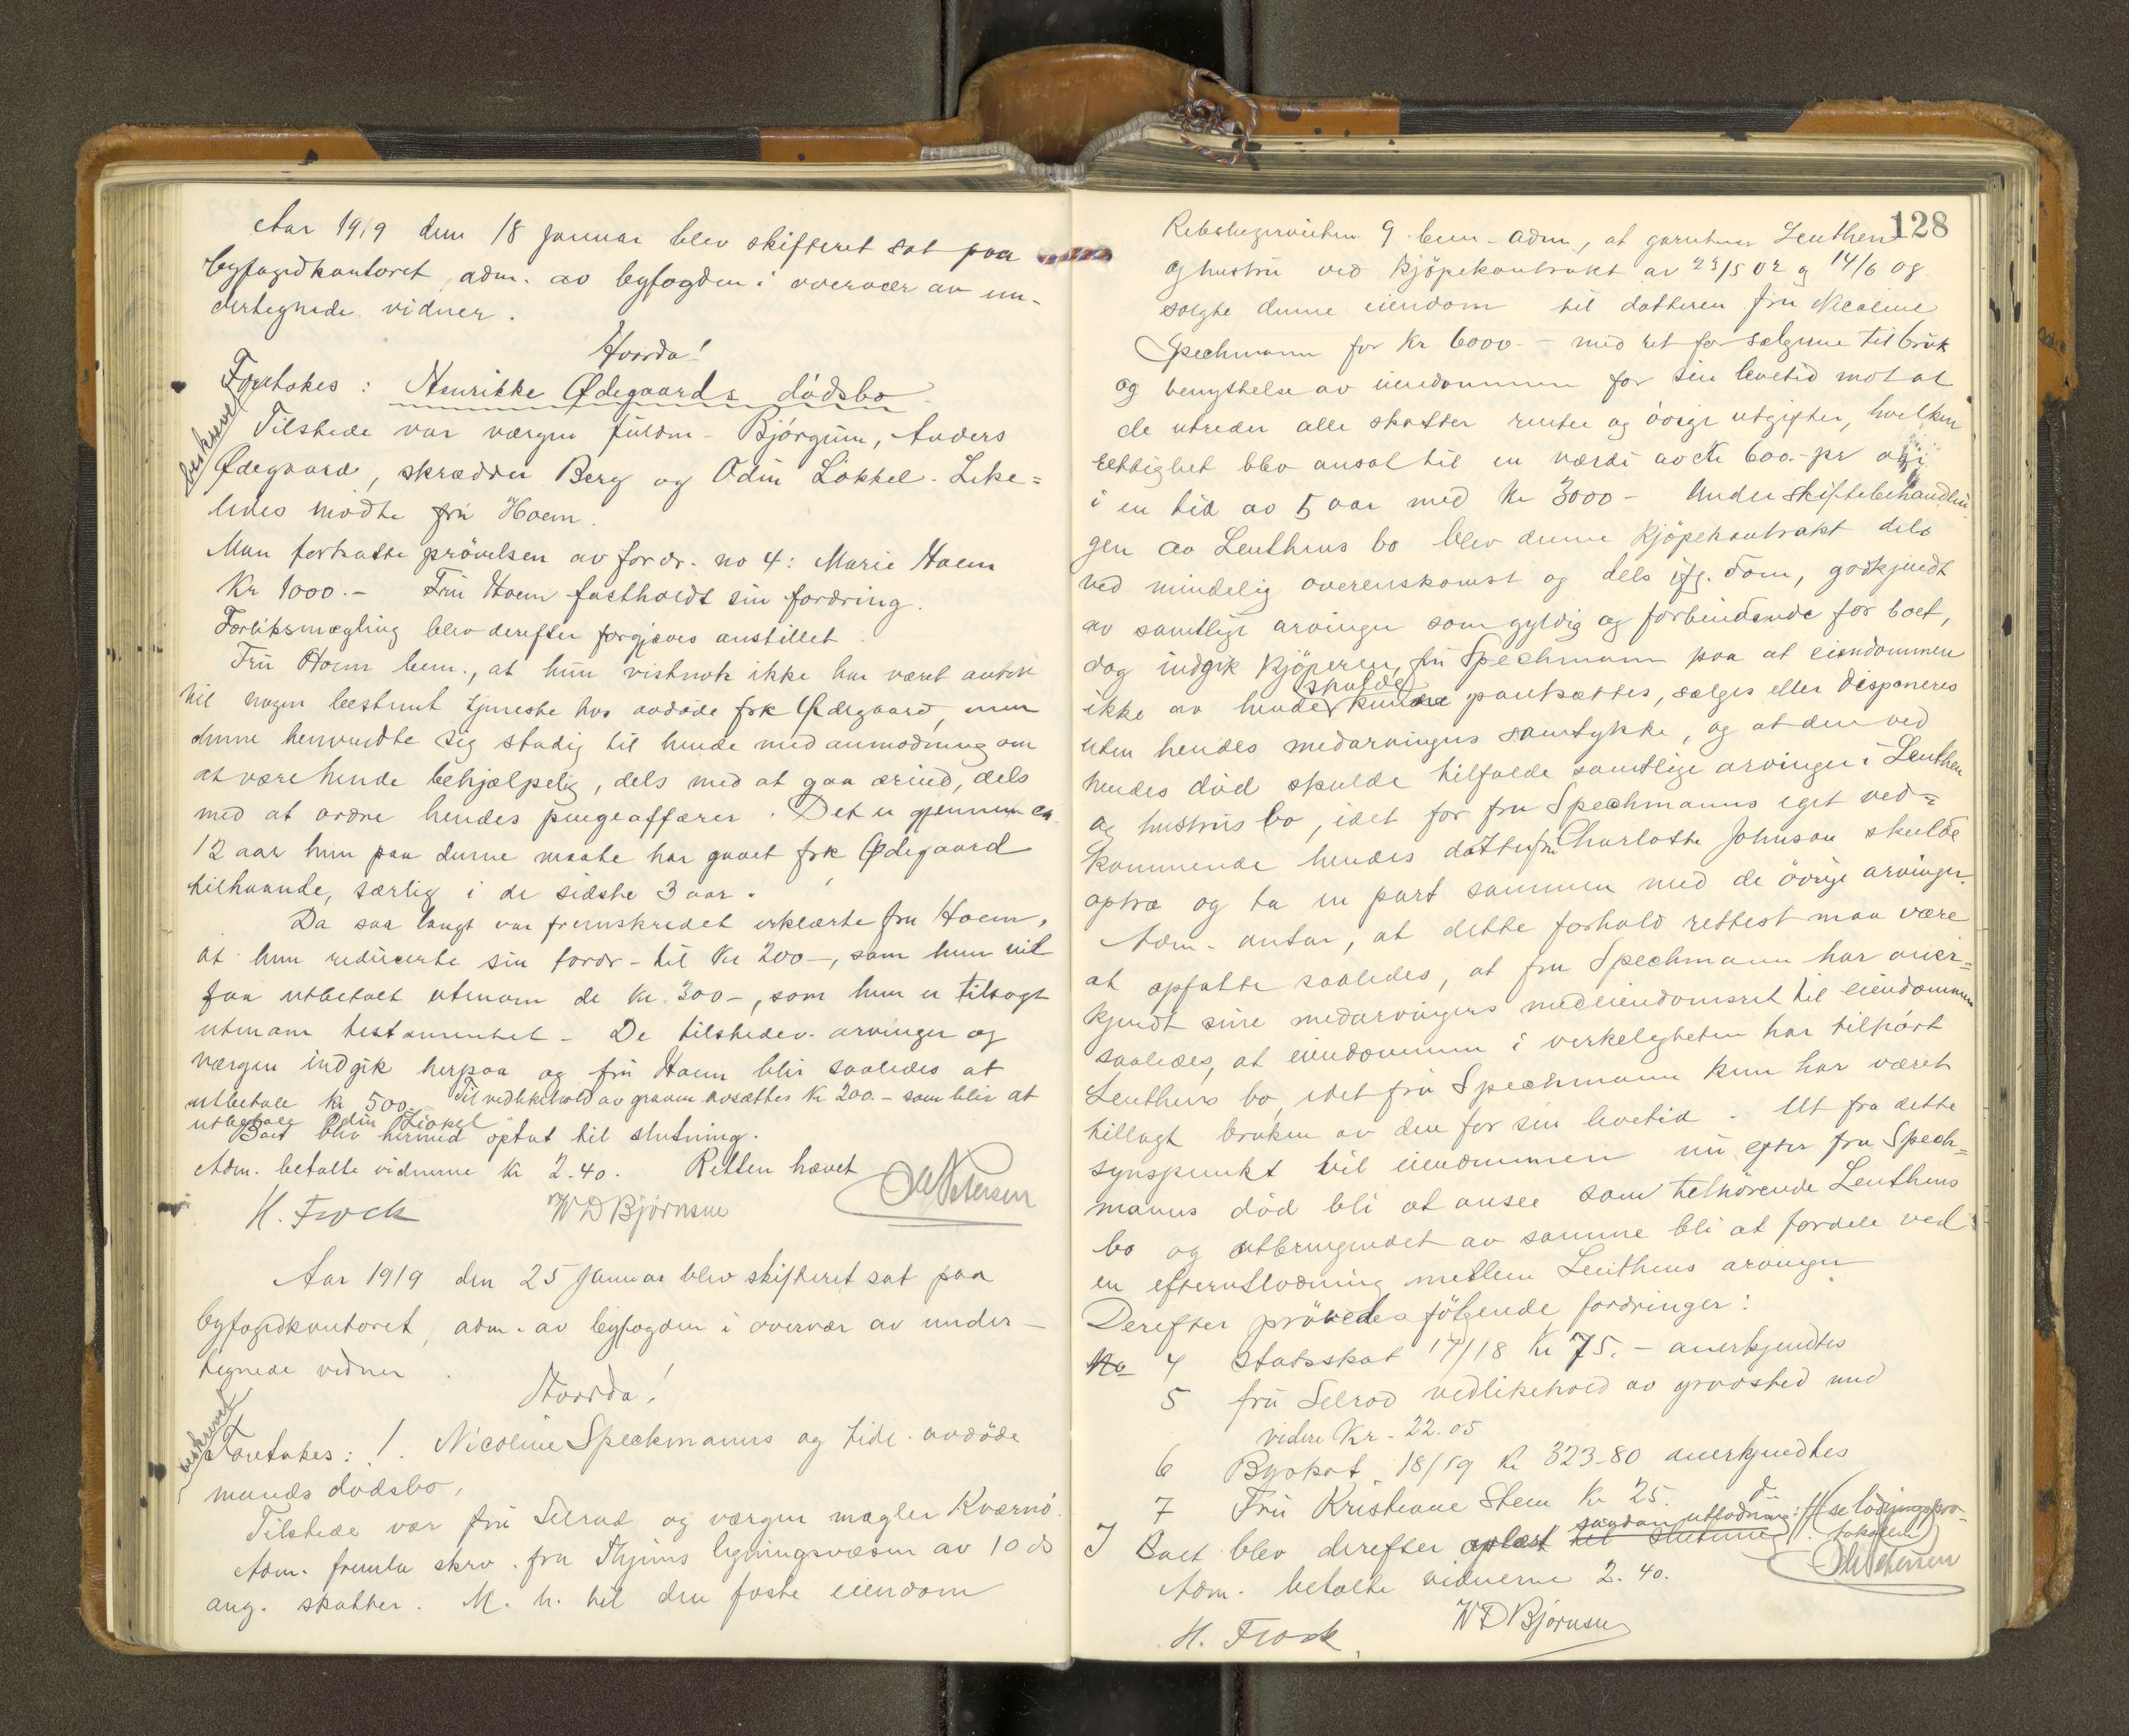 Aar 1919 den 18 Januar blev skifteret sat paa
byfogdkontoret, adm. av byfogden i overvær av un-
dertegnede vidner.
Hvorda!
Foretakes: Henrikke Ødegaards dødsbo
beskrevet
Tilstede var værgen fuldm. Bjørgum, Anders
Ødegaard, skrædder Berg og Odin Løkkel. Like=
ledes mødte fru Hoem.
Man fortsatte prøvelsen av fordr. no 4: Marie Hoem
Kr 1000.- Fru Hoem fastholdt sin fordring.
Forliksmægling blev derefter forgjæves anstillet.
Fru Hoem bem., at hun vistnok ikke har været antat
til nogen bestemt tjeneste hos avdøde frk Ødegaard, men
denne henvendte sig stadig til hende med anmodning om
at være hende behjælpelig, dels med at gaa ærind, dels
med at ordne hendes pengeaffærer. Det er gjennem ca.
12 aar hun paa denne maate har gaaet frk Ødegaard
tilhaande, særlig i de sidste 3 aar.
Da saa langt var fremskredet erklærte fru Hoem,
at hun reducerte sin fordr. til Kr 200-, som hun vil
faa utbetalt utenom de kr. 300-, som hun er tilsagt
utenom testamentet. De tilstedev. arvinger og
værgen indgik herpaa og fru Hoem blir saaledes at
utbetale kr 500.- Til vedlikehold av graven avsættes kr 200.- som blir at
utbetale Odin Løkkel
Boet blev hermed optat til slutning.
Adm. betalte vidnerne kr 2.40. Retten hævet
H. Frock WD Bjørnsen Petersen
Aar 1919 den 25 Januar blev skifteret sat paa
byfogdkontoret, adm. av byfogden i overvær av under-
tegnede vidner.
Hvorda!
beskrevet
Foretakes: 1. Nicoline Speckmanns og tidl. avdøde
mands dødsbo.
Tilstede var fru Selrod og værgen mægler Kværnø.
Adm. fremla skrv. fra Thjems ligningsvæsen av 10 ds
ang. skatter. M. h. til den faste eiendom
128
9 bem. adm., at gartner Leuthen
og hustru ved kjøpekontrakt av 23/5 02 og 14/6 08
solgte denne eiendom til datteren fru Nicoline
Spechmann for Kr 6000.- med ret for sælgerne til bruk
og benyttelse av eiendommen for sin levetid mot at
de utreder alle skatter renter og øvrige utgifter, hvilken
rettighet blev ansat til en værdi av kr 600.- pr aar
i en tid av 5 aar med kr 3000- Under skiftebehandlin-
gen av Leuthens bo blev denne kjøpekontrakt dels
ved mindelig overenskomst og dels ifg. dom, godkjendt
av samtlige arvinger som gyldig og forbindende for boet,
dog indgik kjøperen, fru Spechmann paa at eiendommen
skulde
ikke av hende kunne pantsættes, sælges eller disponeres
uten hendes medarvingers samtykke, og at den ved
hendes død skulde tilfalde samtlige arvinger i Leuthen
og hustrus bo, idet for fru Spechmanns eget ved=
kommende hendes datter fru Charlotte Johnson skulde
optræ og ta en part sammen med de øvrige arvinger.
Adm. antar, at dette forhold rettest maa være
at opfatte saaledes, at fru Spechmann har aner=
kjendt sine medarvingers medeiendomsret til eiendommen
saaledes, at eiendommen i virkeligheten har tilhørt
Leuthens bo, idet fru Spechmann kun har været
tillagt bruken av den for sin levetid. Ut fra dette
synspunkt vil eiendommen nu efter fru Spech=
manns død bli at ansee som tilhørende Leuthens
bo og utbringendet av samme bli at fordele ved
en efterutlodning mellem Leuthens arvinger
Derefter prøvedes følgende fordringer:
No 4 Statsskat 17/18 kr 75.- anerkjendtes
5 fru Selrod vedlikehold av gravsted med
videre Kr. 22.05
6 Byskat 18/19 kr 323-80 anerkjendtes
7 Fru Kristiane Stem Kr 25. do
saadan utlodning: # se lodningspro-
tokollen
I Boet blev derefter oplæst til slutning
Adm. betalte vidnerne 2.40.
Petersen
H. Frock WD Bjørnsen